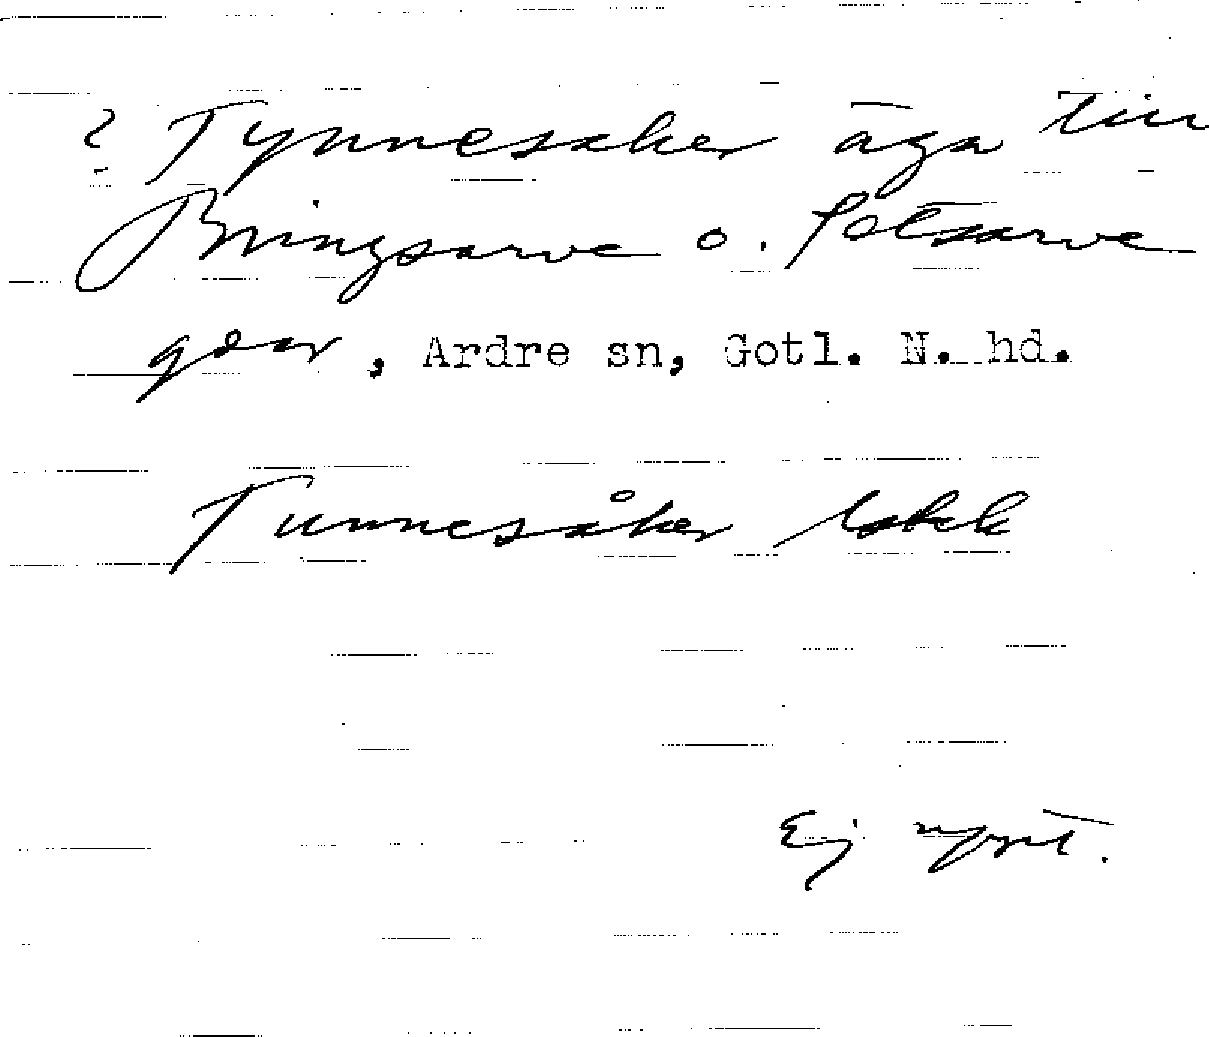 ? Tynnesaker äga till
Bringsarve o. Petsarve
gdar, Ardre sn, Gotl. N. hd.
Tunnesåker
Ej uppt.